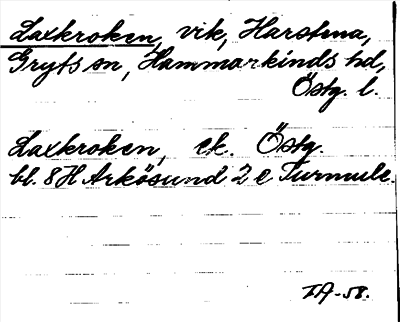 Laxkroken, vik, Harstena,
Gryts sn, Hammarkinds hd,
Östg. l.
Laxkroken, ek. Östg.
bl. 8H Arkösund 2 e Turmule.
TA-58.